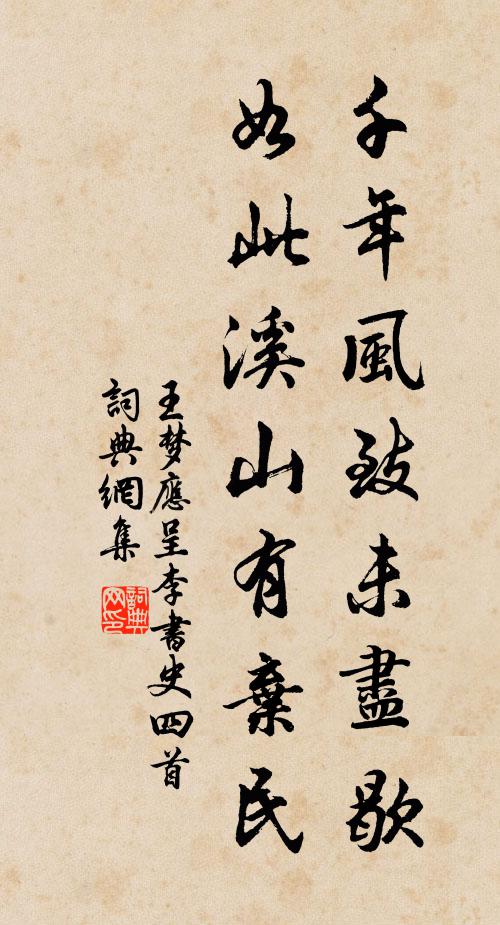 千年風致未盡歇
如此溪山有棄民
王梦應呈李書史四首
詞典網集
詞典
网印